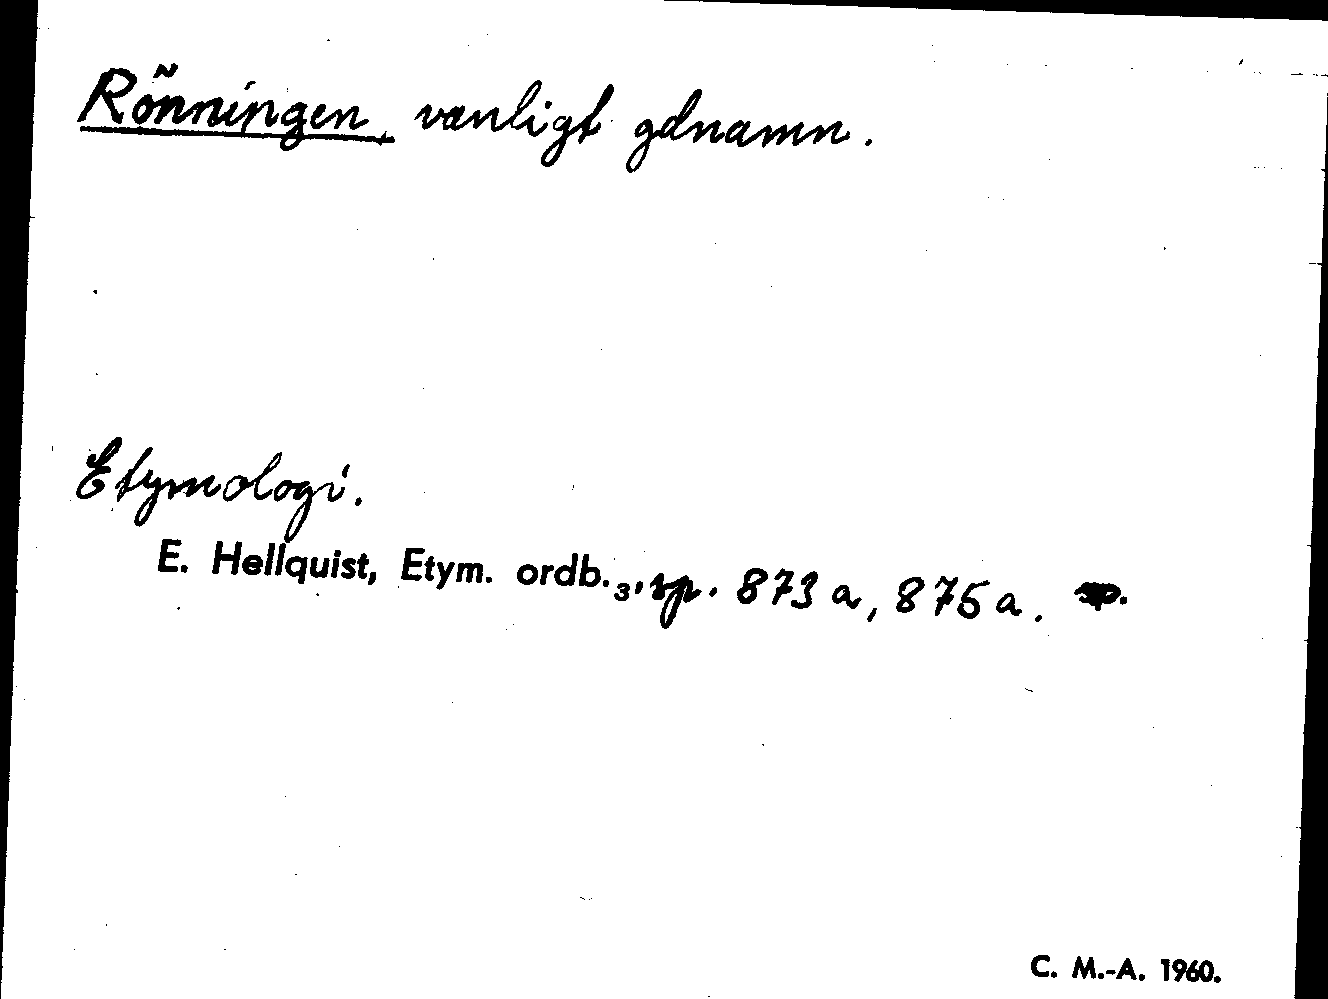 Rönningen, vanligt gdnamn.
Etymologi.
E. Hellquist, Etym. ordb.3, sp. 873 a, 875 a.
C. M.-A. 1960.